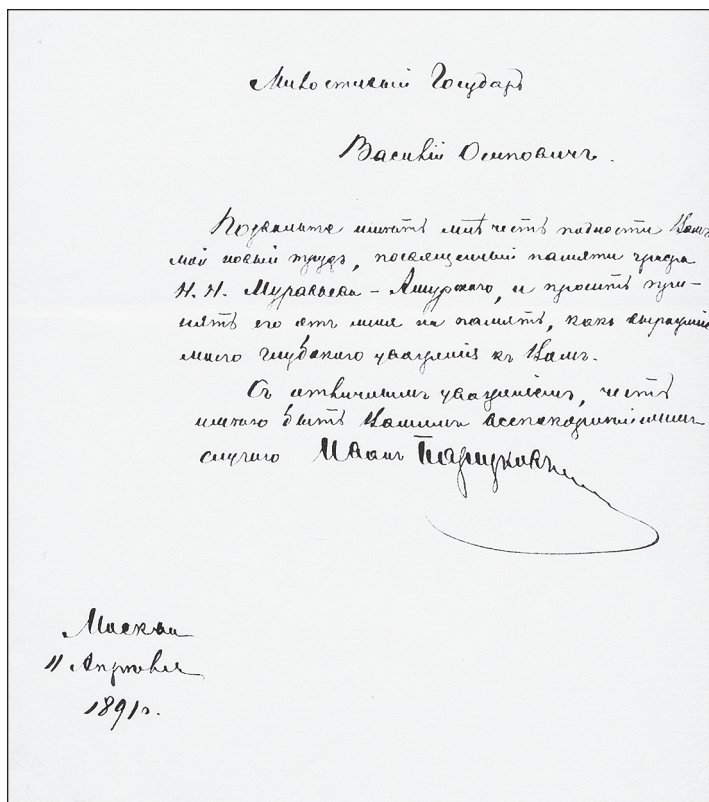 Милостивый Государь
Василий Осиповичъ.
Позвольте имѣть мнѣ честь поднести Вамъ
мой новый трудъ, посвященный памяти графа
Н. Н. Муравьева-Амурскаго, и просить при-
нять его отъ меня на память, какъ выраженіе
моего глубокаго уваженія къ Вамъ.
Съ отличнымъ уваженіемъ, честь
имѣю быть Вашимъ всепокорнѣйшимъ
слугою Иванъ Барсуковъ
Москва
11 Апрѣля
1891 г.